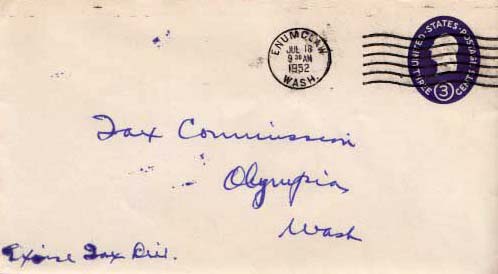 ENUMCLAW
JUL 18
9 30 AM
1952
WASH.
UNITED·STATES·POSTAGE
THREE 3 CENTS
Tax Commission
Olympia,
Wash
Excise Tax Div.